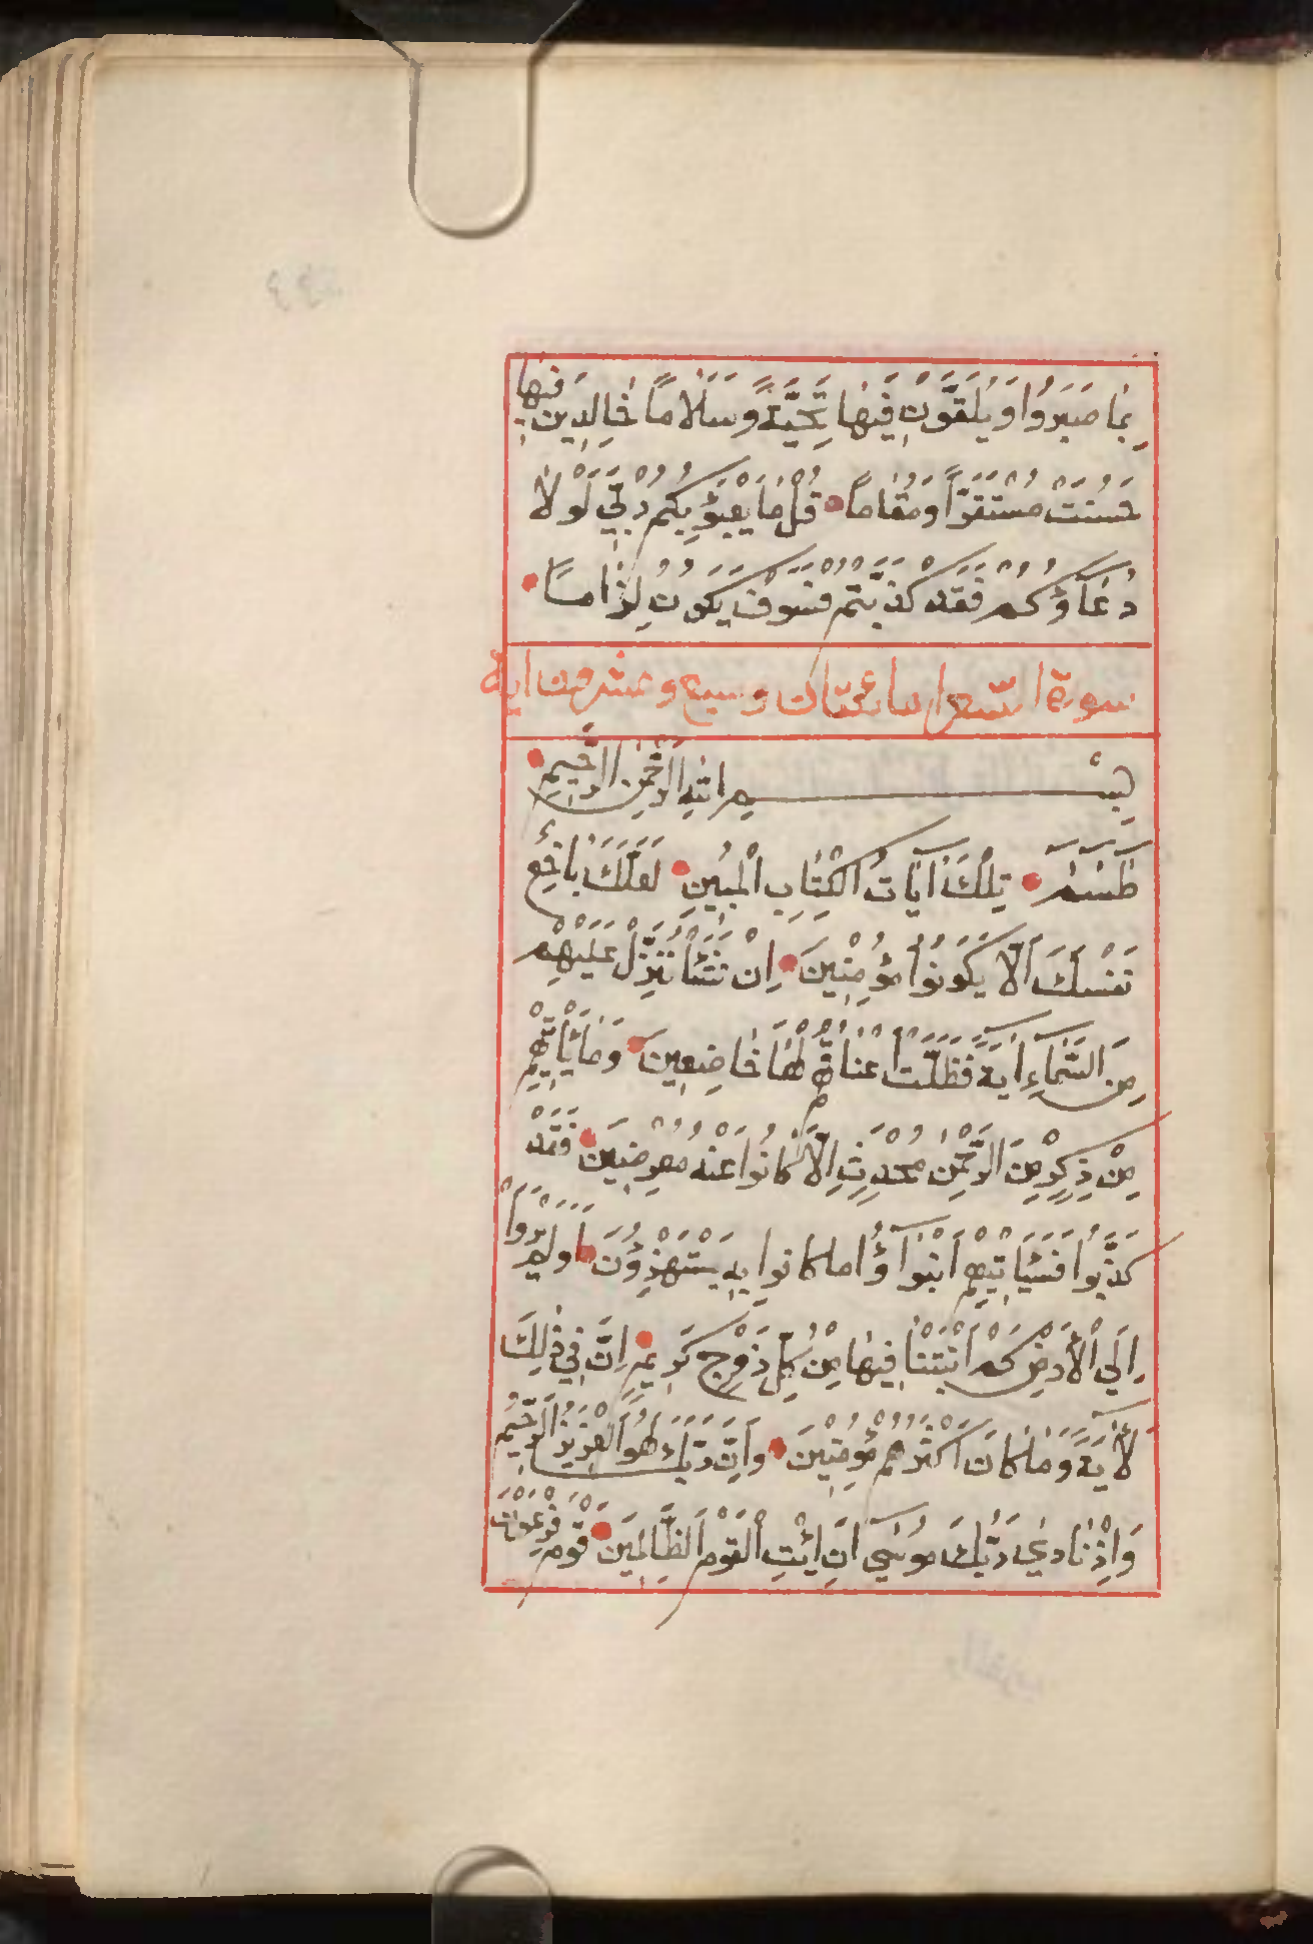 بِمَا صَبَرُوا وَيُلَقَّوْنَ فِيهَا تَحِيَّةً وَسَلَامًا خَالِدِينَ فِيهَا
حَسُنَتْ مُسْتَقَرًّا وَمُقَامًا قُلْ مَا يَعْبَؤُ بِكُمْ رَبِّي لَوْلَا
دُعَاؤُكُمْ فَقَدْ كَذَّبْتُمْ فَسَوْفَ يَكُونُ لِزَامًا
سورة الشعرا مائتان وسبع وعشرون اية
بِسْمِ اللهِ الرَّحْمٰنِ الرَّحِيمِ
طٰسٓمٓ تِلْكَ آيَاتُ الْكِتَابِ الْمُبِينِ لَعَلَّكَ بَاخِعٌ
نَفْسَكَ أَلَّا يَكُونُوا مُؤْمِنِينَ إِنْ نَشَأْ نُنَزِّلْ عَلَيْهِمْ
مِنَ السَّمَاءِ اٰيَةً فَظَلَّتْ أَعْنَاقُهُمْ لَهَا خَاضِعِينَ وَمَا يَأْتِيهِمْ
مِنْ ذِكْرٍ مِنَ الرَّحْمٰنِ مُحْدَثٍ إِلَّا كَانُوا عَنْهُ مُعْرِضِينَ فَقَدْ
كَذَّبُوا فَسَيَأْتِيهِمْ أَنْبَاؤُا ما كانوا بِهِ يَسْتَهْزِؤُنَ أَوَلَمْ يَرَوْا
إِلَى الْأَرْضِ كَمْ أَنْبَتْنَا فِيهَا مِنْ كُلِّ زَوْجٍ كَرِيمٍ إِنَّ فِي ذٰلِكَ
لَأٰيَةً وَمَا كَانَ أَكْثَرُهُمْ مُؤْمِنِينَ وَإِنَّ رَبَّكَ لَهُوَ الْعَزِيزُ الرَّحِيمُ
وَإِذْ نَادٰي رَبُّكَ مُوسَي أَنِ ائْتِ الْقَوْمَ الظَّالِمِينَ قَوْمَ فِرْعَوْنَ